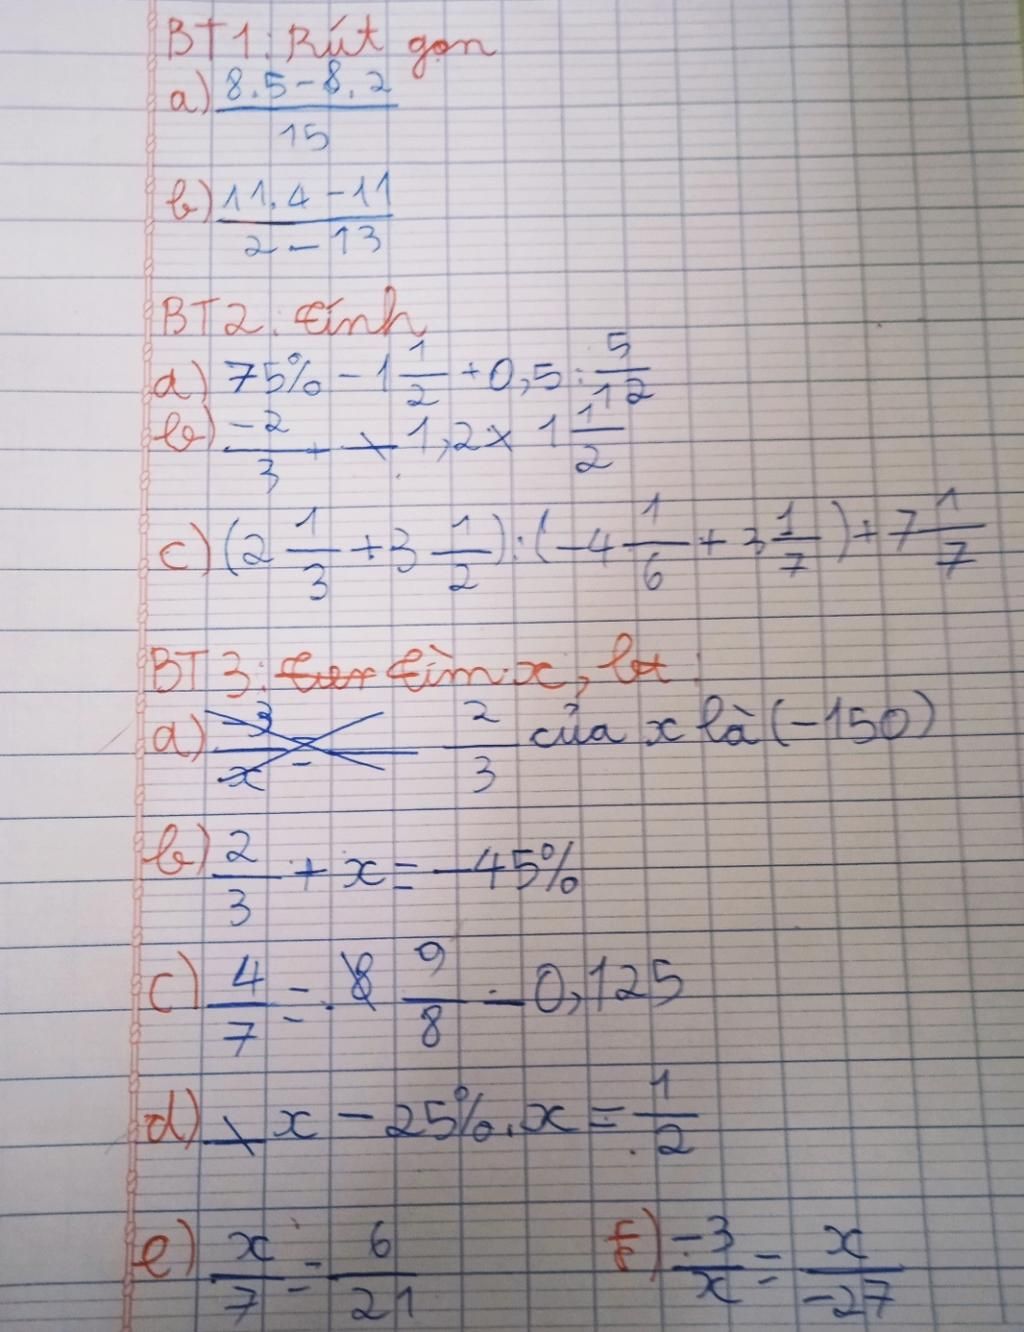 BT1: Rút gọn
a) \frac{8.5-8.2}{15}
b) \frac{11.4-11}{2-13}
BT2: tính
a) 75% - 1\frac{1}{2} + 0,5 : \frac{5}{12}
b) \frac{-2}{3} + 1,2 x 1\frac{1}{2}
c) (2\frac{1}{3} + 3\frac{1}{2}) : (-4\frac{1}{6} + 3\frac{1}{7}) + 7\frac{1}{7}
BT3: tìm x, bt:
a) \frac{2}{3} của x là (-150)
b) \frac{2}{3} + x = -45%
c) \frac{4}{7} = \frac{9}{8} - 0,125
d) x - 25%.x = \frac{1}{2}
e) \frac{x}{7} = \frac{6}{21} f) \frac{-3}{x} = \frac{x}{-27}